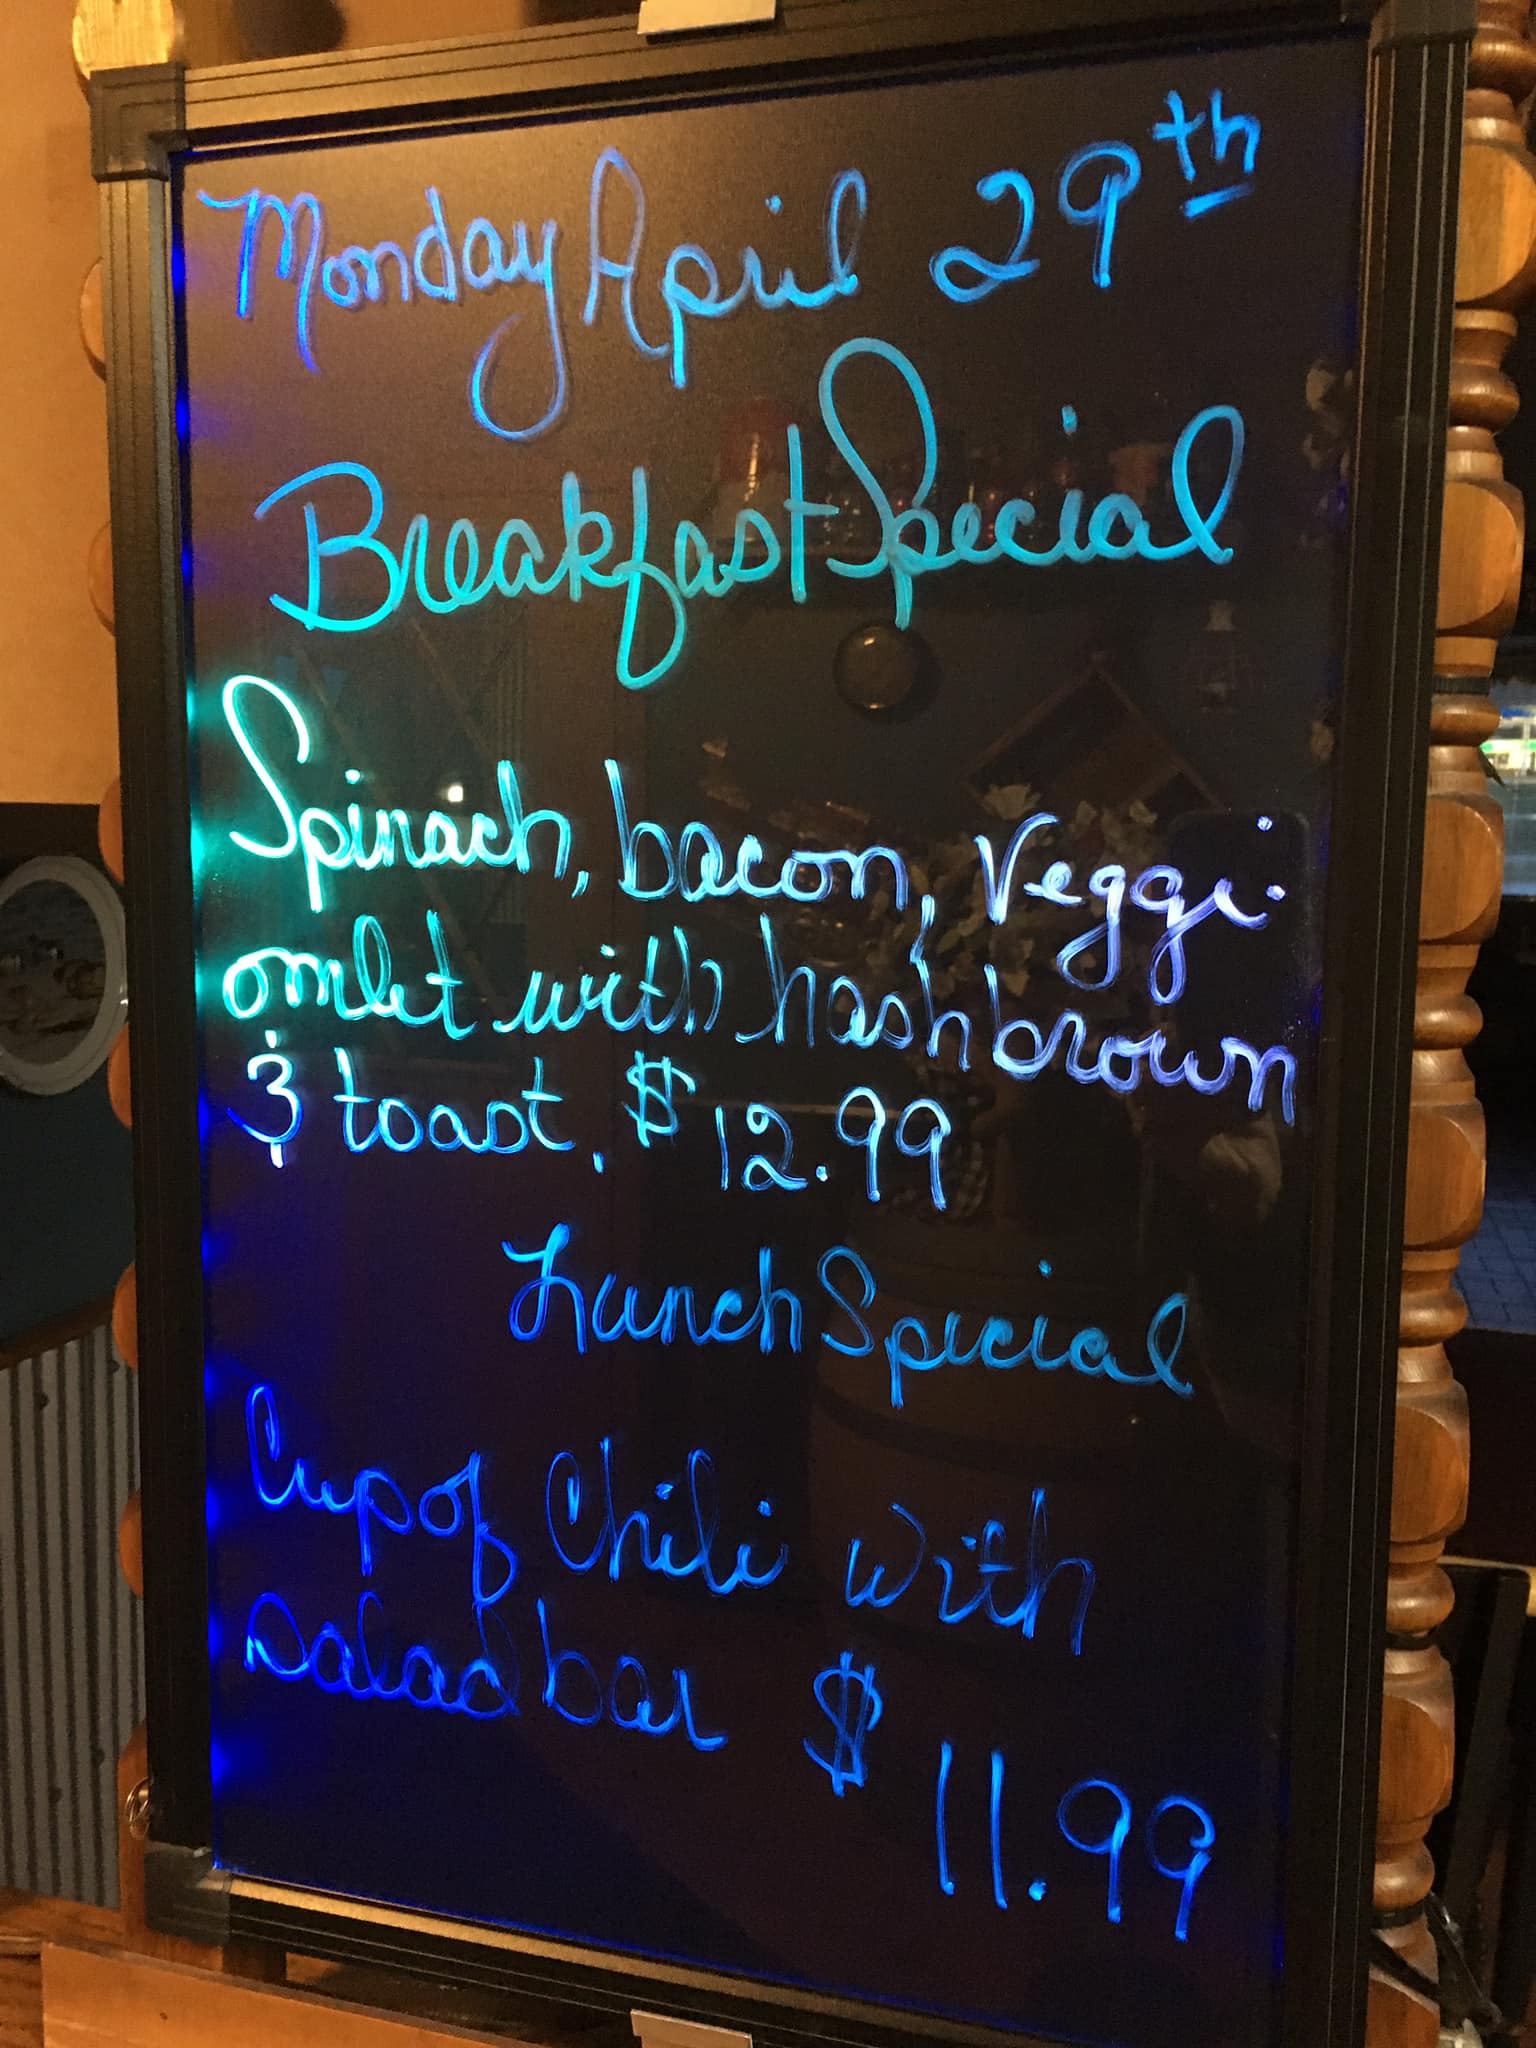 Monday April 29th
Breakfast Special
Spinach, bacon, Veggi
omlet with hashbrown
& toast. $12.99
Lunch Special
Cup of Chili with
salad bar $11.99